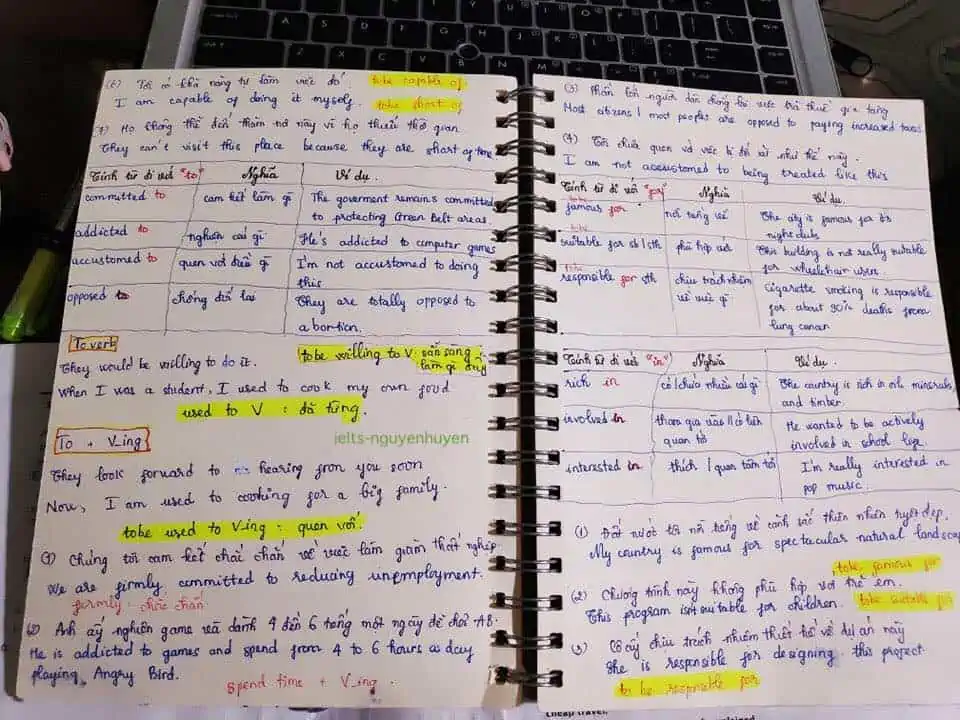 (6) Tôi có khả năng tự làm việc đó. to be capable of
I am capable of doing it myself. to be short of
(7) Họ không thể đến thăm nơi này vì họ thiếu thời gian
They can't visit this place because they are short of time
Tính từ đi với "to" Nghĩa Ví dụ.
committed to cam kết làm gì The goverment remains committed
to protecting Green Belt areas.
addicted to nghiện cái gì He's addicted to computer games
accustomed to quen với điều gì I'm not accustomed to doing
this
opposed to chống đối lại They are totally opposed to
abortion.
To verb
They would be willing to do it. to be willing to V: sẵn sàng
làm gì đấy
When I was a student, I used to cook my own food
used to V : đã từng.
ielts-nguyenhuyen
To + V_ing
They look forward to hearing from you soon
Now, I am used to cooking for a big family.
tobe used to V-ing : quen với.
(1) Chúng tôi cam kết chắc chắn về việc làm giảm thất nghiệp.
We are firmly committed to reducing unemployment.
firmly : chắc chắn
(2) Anh ấy nghiện game và dành 4 đến 6 tiếng một ngày để chơi AB.
He is addicted to games and spend from 4 to 6 hours a day
playing Angry Bird.
spend time + V_ing.
(3) Phần lớn người dân chống lại việc trả thuế gia tăng
Most citizens / most peoples are opposed to paying increased taxes.
(4) Tôi chưa quen với việc bị đối xử như thế này.
I am not accustomed to being treated like this
Tính từ đi với "for" Nghĩa Ví dụ
to be
famous for nổi tiếng về The city is famous for its
nightclubs
to be
suitable for sb/sth phù hợp với This building is not really suitable
for wheelchair users.
to be
responsible for sth chịu trách nhiệm Cigarette smoking is responsible
về việc gì for about 90% deaths from
lung cancer
Tính từ đi với "in" Nghĩa Ví dụ.
rich in có/chứa nhiều cái gì The country is rich in oil, minerals
and timber.
involved in tham gia vào // có liên He wanted to be actively
quan tới involved in school life.
interested in thích / quan tâm tới I'm really interested in
pop music.
(1) Đất nước tôi nổi tiếng về cảnh sắc thiên nhiên tuyệt đẹp.
My country is famous for spectacular natural landscap
to be famous for
(2) Chương trình này không phù hợp với trẻ em.
This program isn't suitable for children. to be suitable for
(3) Cô ấy chịu trách nhiệm thiết kế về dự án này
She is responsible for designing this project.
to be responsible for
cheap travel.